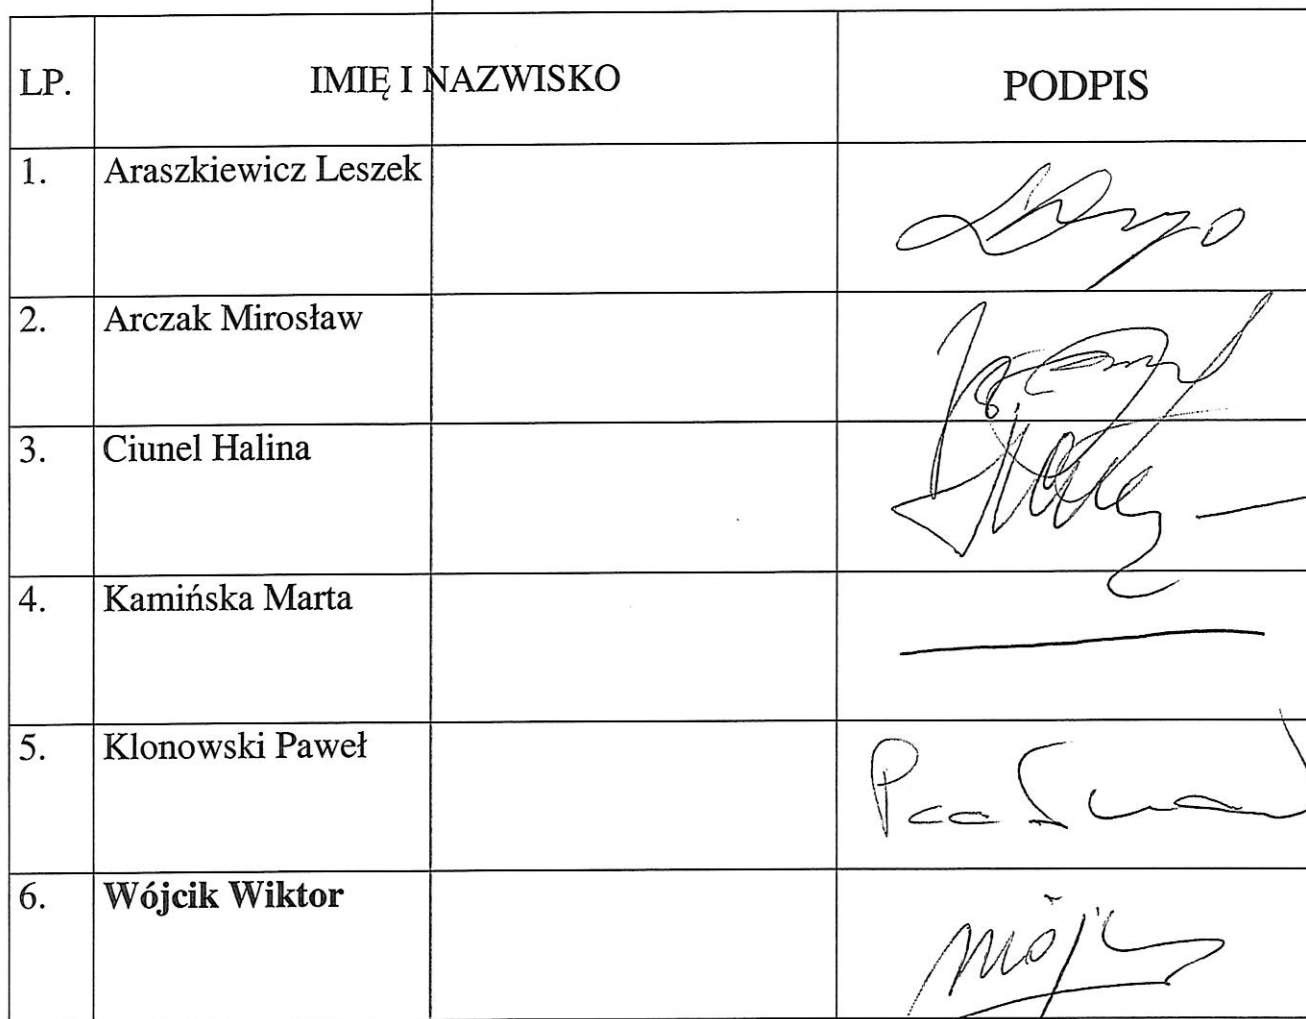 LP. IMIĘ I NAZWISKO PODPIS
1. Araszkiewicz Leszek
2. Arczak Mirosław
3. Ciunel Halina
4. Kamińska Marta
5. Klonowski Paweł
6. Wójcik Wiktor